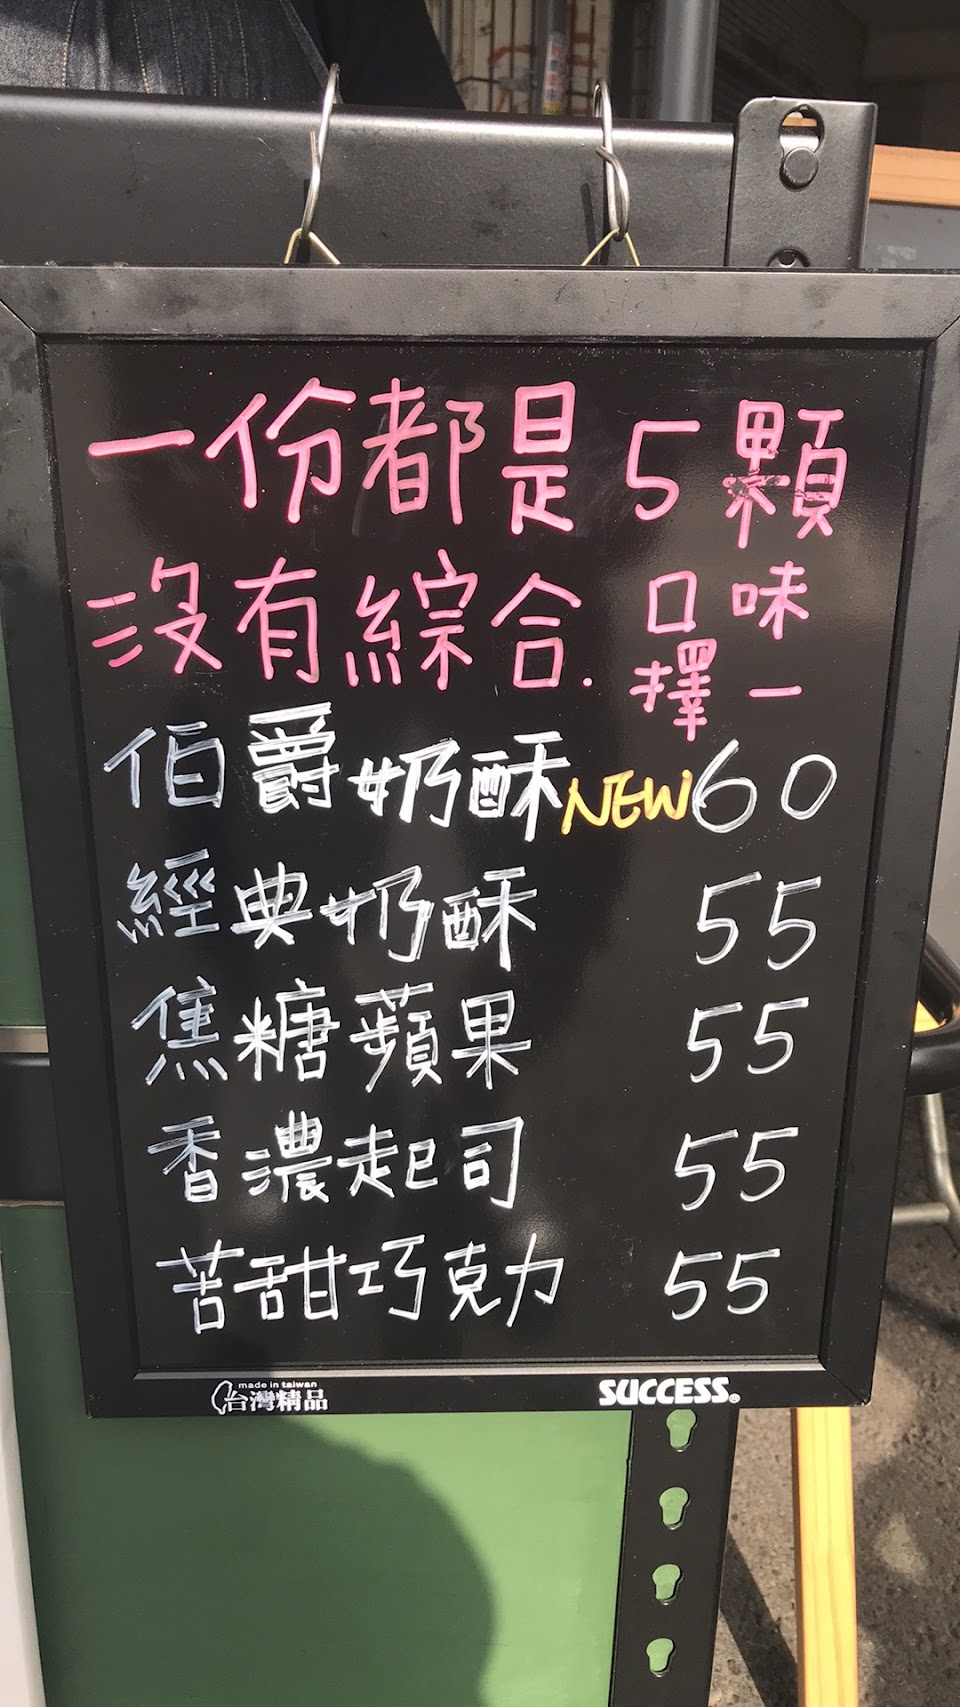 一份都是5顆
沒有綜合. 口味擇一
伯爵奶酥NEW 60
經典奶酥 55
焦糖蘋果 55
香濃起司 55
苦甜巧克力 55
made in taiwan
台灣精品
SUCCESS®